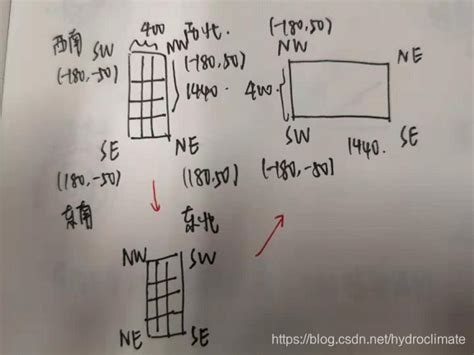 400
西南 SW NW 西北
(-180,-50) (-180,50)
1440
SE NE
(180,-50) (180,50)
东南 东北
NW SW
NE SE
(-180,50)
NW NE
400
SW SE
1440
(-180,-50)
https://blog.csdn.net/hydroclimate